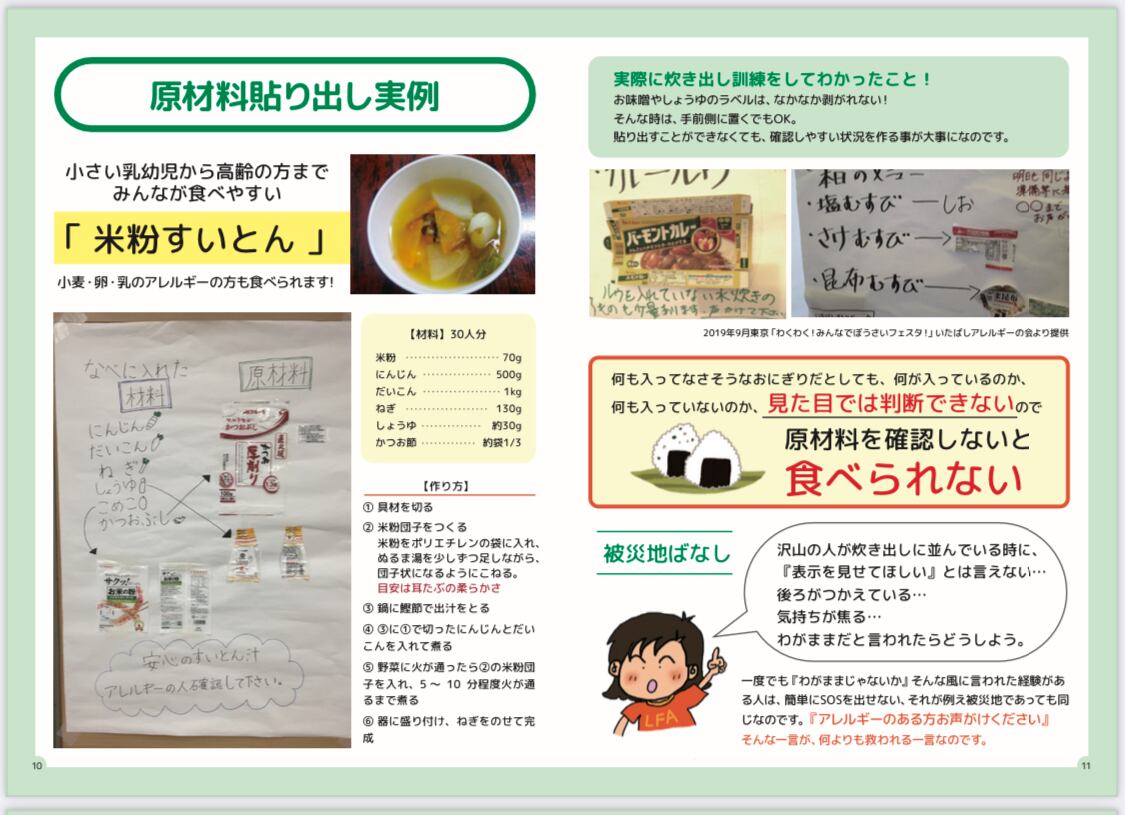 原材料貼り出し実例
小さい乳幼児から高齢の方まで
みんなが食べやすい
「 米粉すいとん 」
小麦・卵・乳のアレルギーの方も食べられます!
なべに入れた
材料
原材料
にんじん
だいこん
ねぎ
しょうゆ
こめこ
かつおぶし
厚削り
サクッ!
お米の粉
安心のすいとん汁
アレルギーの人も確認して下さい。
【材料】30人分
米粉 ………………………… 70g
にんじん ………………… 500g
だいこん ………………… 1kg
ねぎ ……………………… 130g
しょうゆ ………………… 約30g
かつお節 ……………… 約袋1/3
【作り方】
① 具材を切る
② 米粉団子をつくる
米粉をポリエチレンの袋に入れ、
ぬるま湯を少しずつ足しながら、
団子状になるようにこねる。
目安は耳たぶの柔らかさ
③ 鍋に鰹節で出汁をとる
④ ③に①で切ったにんじんとだい
こんを入れて煮る
⑤ 野菜に火が通ったら②の米粉団
子を入れ、5 ～ 10 分程度火が通
るまで煮る
⑥ 器に盛り付け、ねぎをのせて完
成
10
実際に炊き出し訓練をしてわかったこと！
お味噌やしょうゆのラベルは、なかなか剥がれない!
そんな時は、手前側に置くでもOK。
貼り出すことができなくても、確認しやすい状況を作る事が大事になのです。
バーモントカレー
ルウを入れていない水炊きの
・塩むすび ーしお
・さけむすび→
・昆布むすび→
2019年9月東京「わくわく！みんなでぼうさいフェスタ！」いたばしアレルギーの会より提供
何も入ってなさそうなおにぎりだとしても、何が入っているのか、
何も入っていないのか、見た目では判断できないので
原材料を確認しないと
食べられない
被災地ばなし
沢山の人が炊き出しに並んでいる時に、
『表示を見せてほしい』とは言えない…
後ろがつかえている…
気持ちが焦る…
わがままだと言われたらどうしよう。
LFA
一度でも『わがままじゃないか』そんな風に言われた経験があ
る人は、簡単にSOSを出せない、それが例え被災地であっても同
じなのです。『アレルギーのある方お声がけください』
そんな一言が、何よりも救われる一言なのです。
11